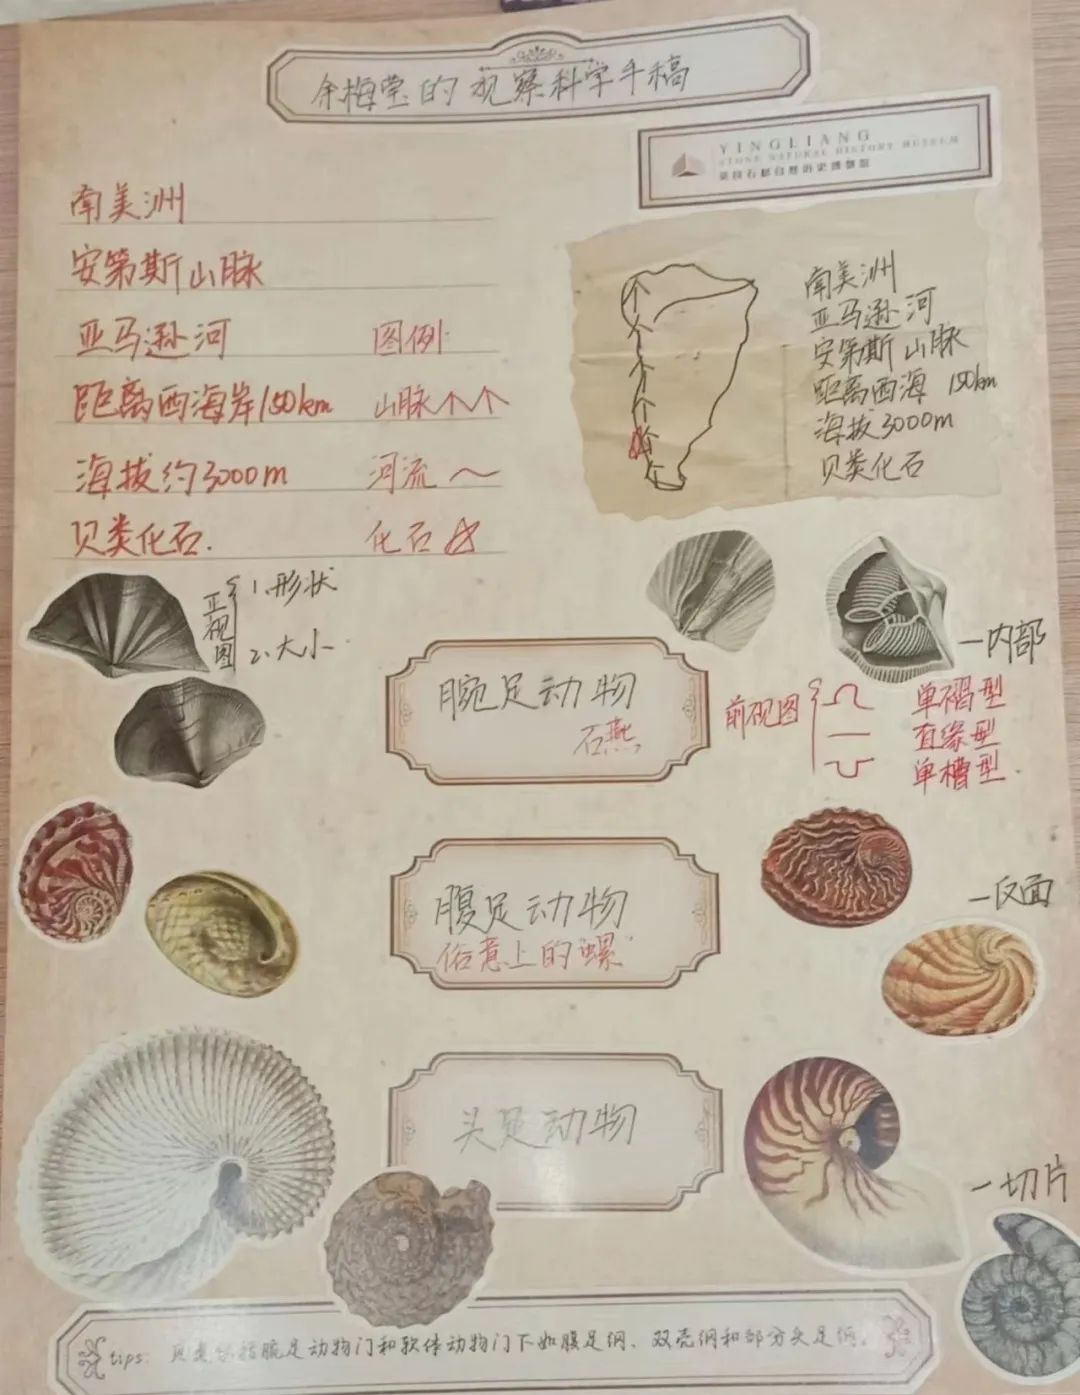 余梅莹的观察科学手稿
YINGLIANG
STONE NATURAL HISTORY MUSEUM
英良石材自然历史博物馆
南美洲
安第斯山脉
亚马逊河
距离西海岸150km
海拔约3000m
贝类化石.
图例:
山脉
河流
化石
南美洲
亚马逊河
安第斯山脉
距离西海 150km
海拔3000m
贝类化石
正视图
1.形状
2.大小
内部
腕足动物
石燕
前视图
单褶型
直缘型
单槽型
腹足动物
俗意上的“螺”
反面
头足动物
切片
tips: 贝类包括腕足动物门和软体动物门下如腹足纲、双壳纲和部分头足纲。